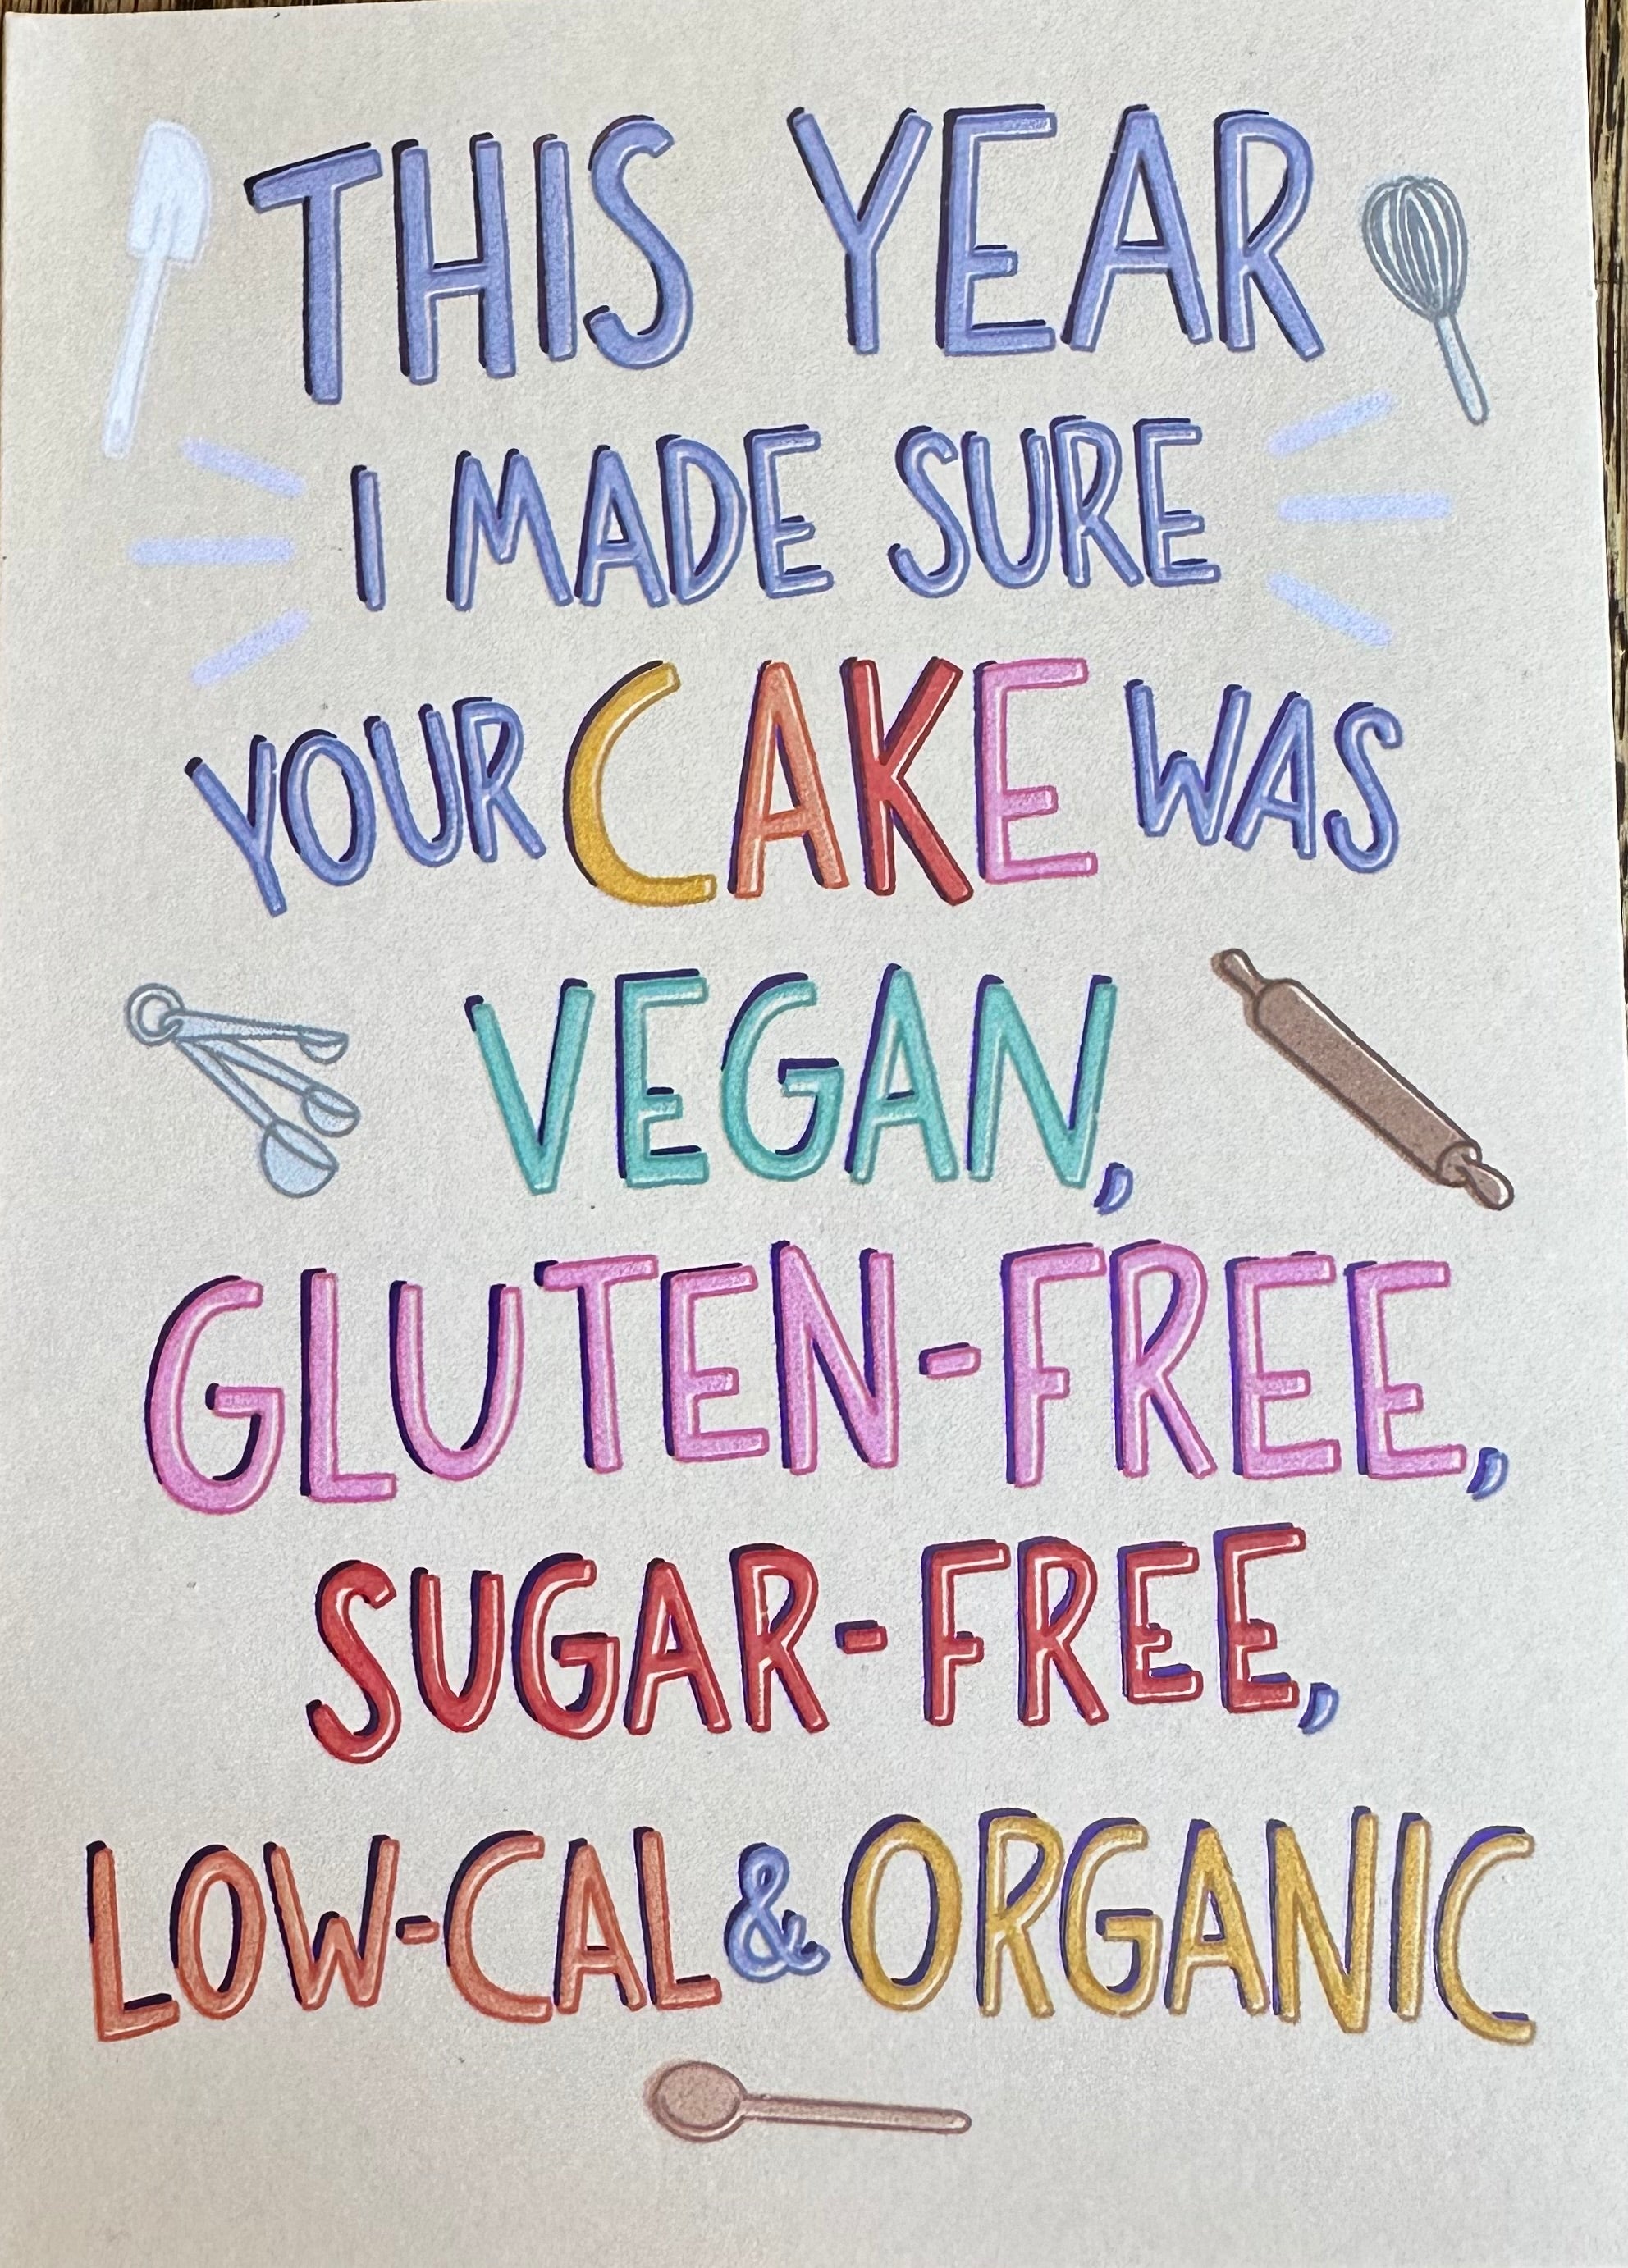 THIS YEAR
I MADE SURE
YOUR CAKE WAS
VEGAN,
GLUTEN-FREE,
SUGAR-FREE,
LOW-CAL & ORGANIC